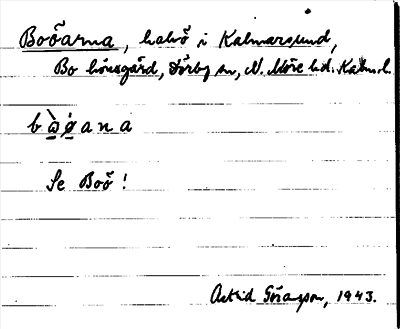 Booarna, halvö i Kalmarsund,
Bo hönsgård, Förby sn, N. Möre hd. Kalm. l.
bo̲ø̲ana
Se Boö!
Astrid Göransson, 1943.